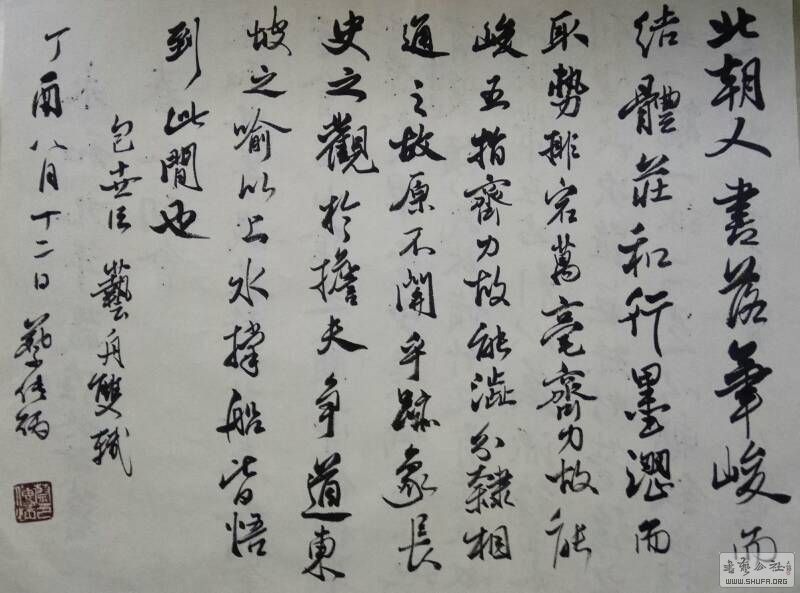 北朝人書落筆峻而
結體莊和行墨澀而
取勢排宕萬毫齊力故能
峻五指齊力故能澁分隸相
通之故原不關乎跡象長
史之觀於擔夫争道東
坡之喻以上水撑船皆悟
到此間也
包世臣 藝舟雙
丁酉八月十二日 蔡
书艺公社
WWW.SHUFA.ORG